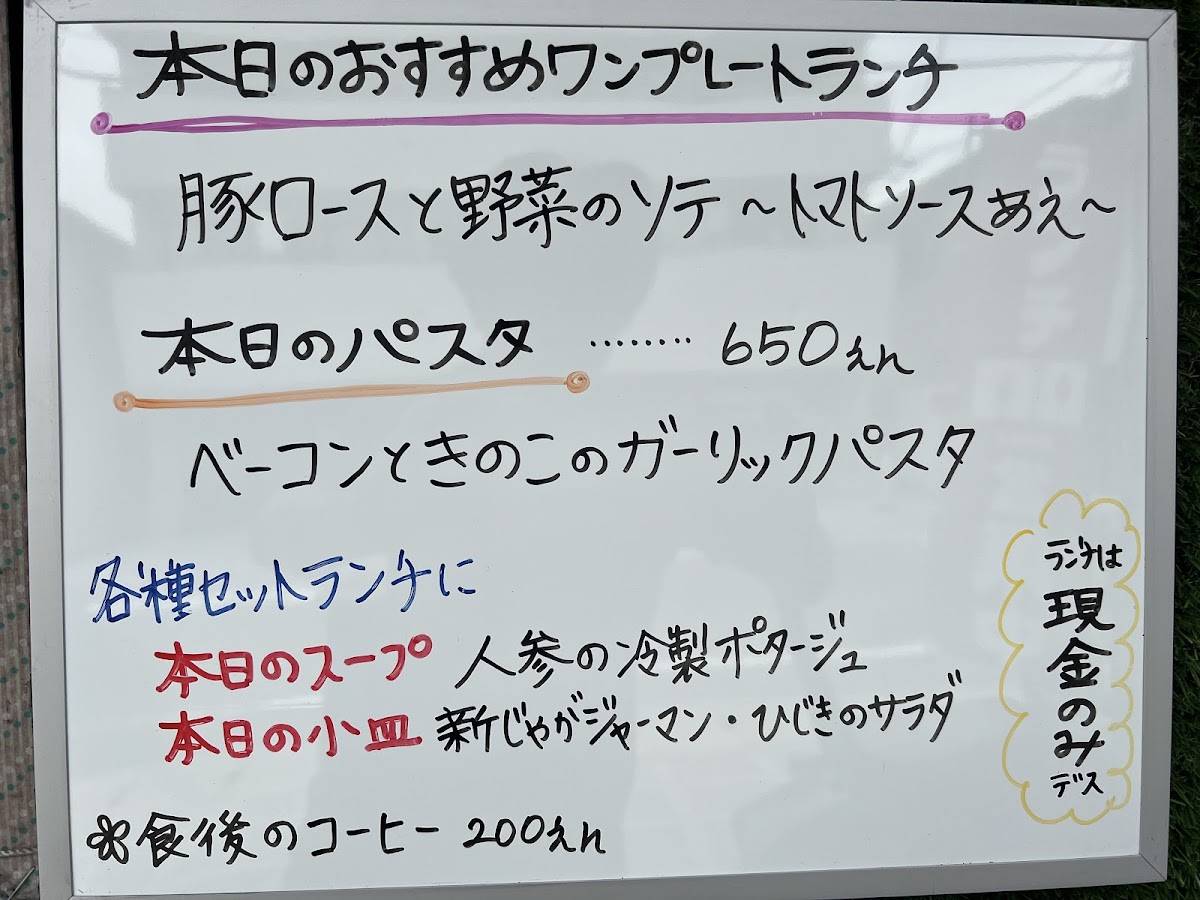 本日のおすすめワンプレートランチ
豚ロースと野菜のソテー〜トマトソースあえ〜
本日のパスタ ‥‥‥‥ 650えん
ベーコンときのこのガーリックパスタ
各種セットランチに
本日のスープ 人参の冷製ポタージュ
本日の小皿 新じゃがジャーマン・ひじきのサラダ
食後のコーヒー 200えん
ランチは
現
金
の
み
デス